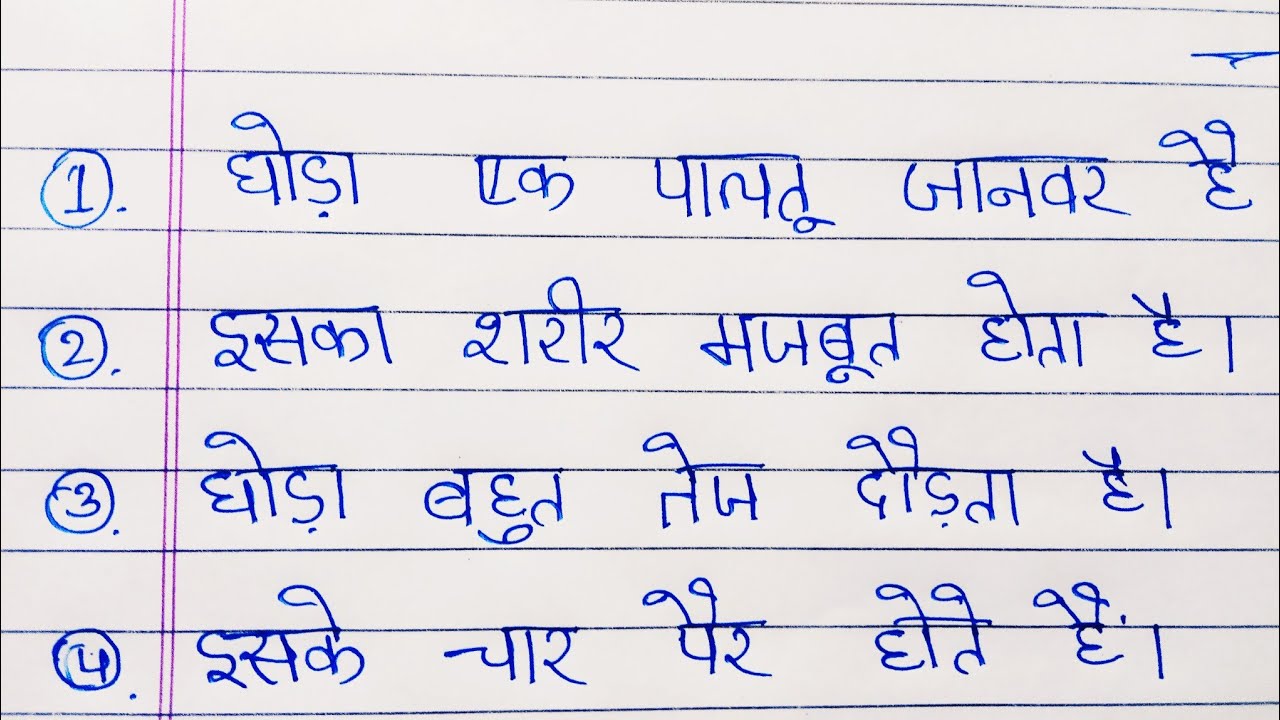 1. घोड़ा एक पालतू जानवर है
2. इसका शरीर मजबूत होता है।
3. घोड़ा बहुत तेज दौड़ता है।
4. इसके चार पैर होते हैं।